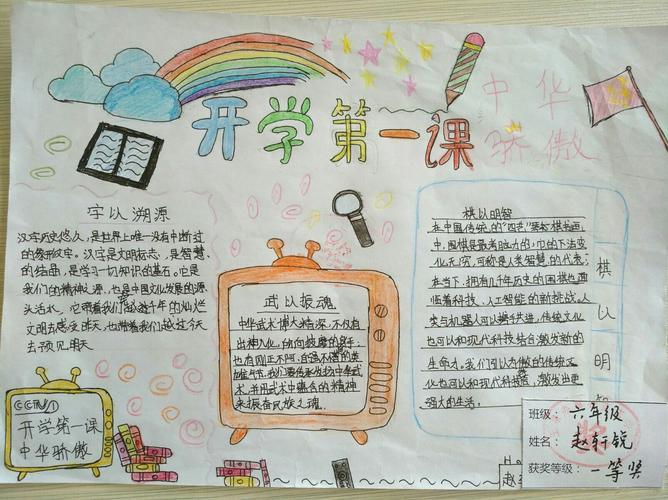 开学第一课
中华
骄傲
字以溯源
汉字历史悠久,是世界上唯一没有中断过
的象形文字。汉字是文明标志,是智慧
的结晶,是学习一切知识的基石。它是
我们的精神之源,也是中国文化发展的源
头活水,它带着我们越过千年的灿烂
文明去感受昨天,也带着我们越过今天
去预见明天
武以振魂
中华武术博大精深,不仅有
出神入化、所向披靡的
也有刚正不阿、自强不息的英
雄气节。我们要传承发扬中华武
术,并用武术中蕴含的精神
来振奋民族之魂。
棋以明智
在中国传统的“四艺”琴棋书画
中,围棋是最考脑力的,巾的下法变
化无穷,可称是人类智慧的代表;
在当下,拥有几千年历史的围棋也面
临着科技、人工智能的新挑战,人
类与机器人可以携手共进,传统文化
也可以和现代科技结合激发新的
生命力。我们引以为傲的传统文
化也可以和现代科技结合,激发出更
强大的生活。
棋
以
明
CCTV1
开学第一课
中华骄傲
班级:六年级
姓名:赵轩锐
获奖等级:一等奖